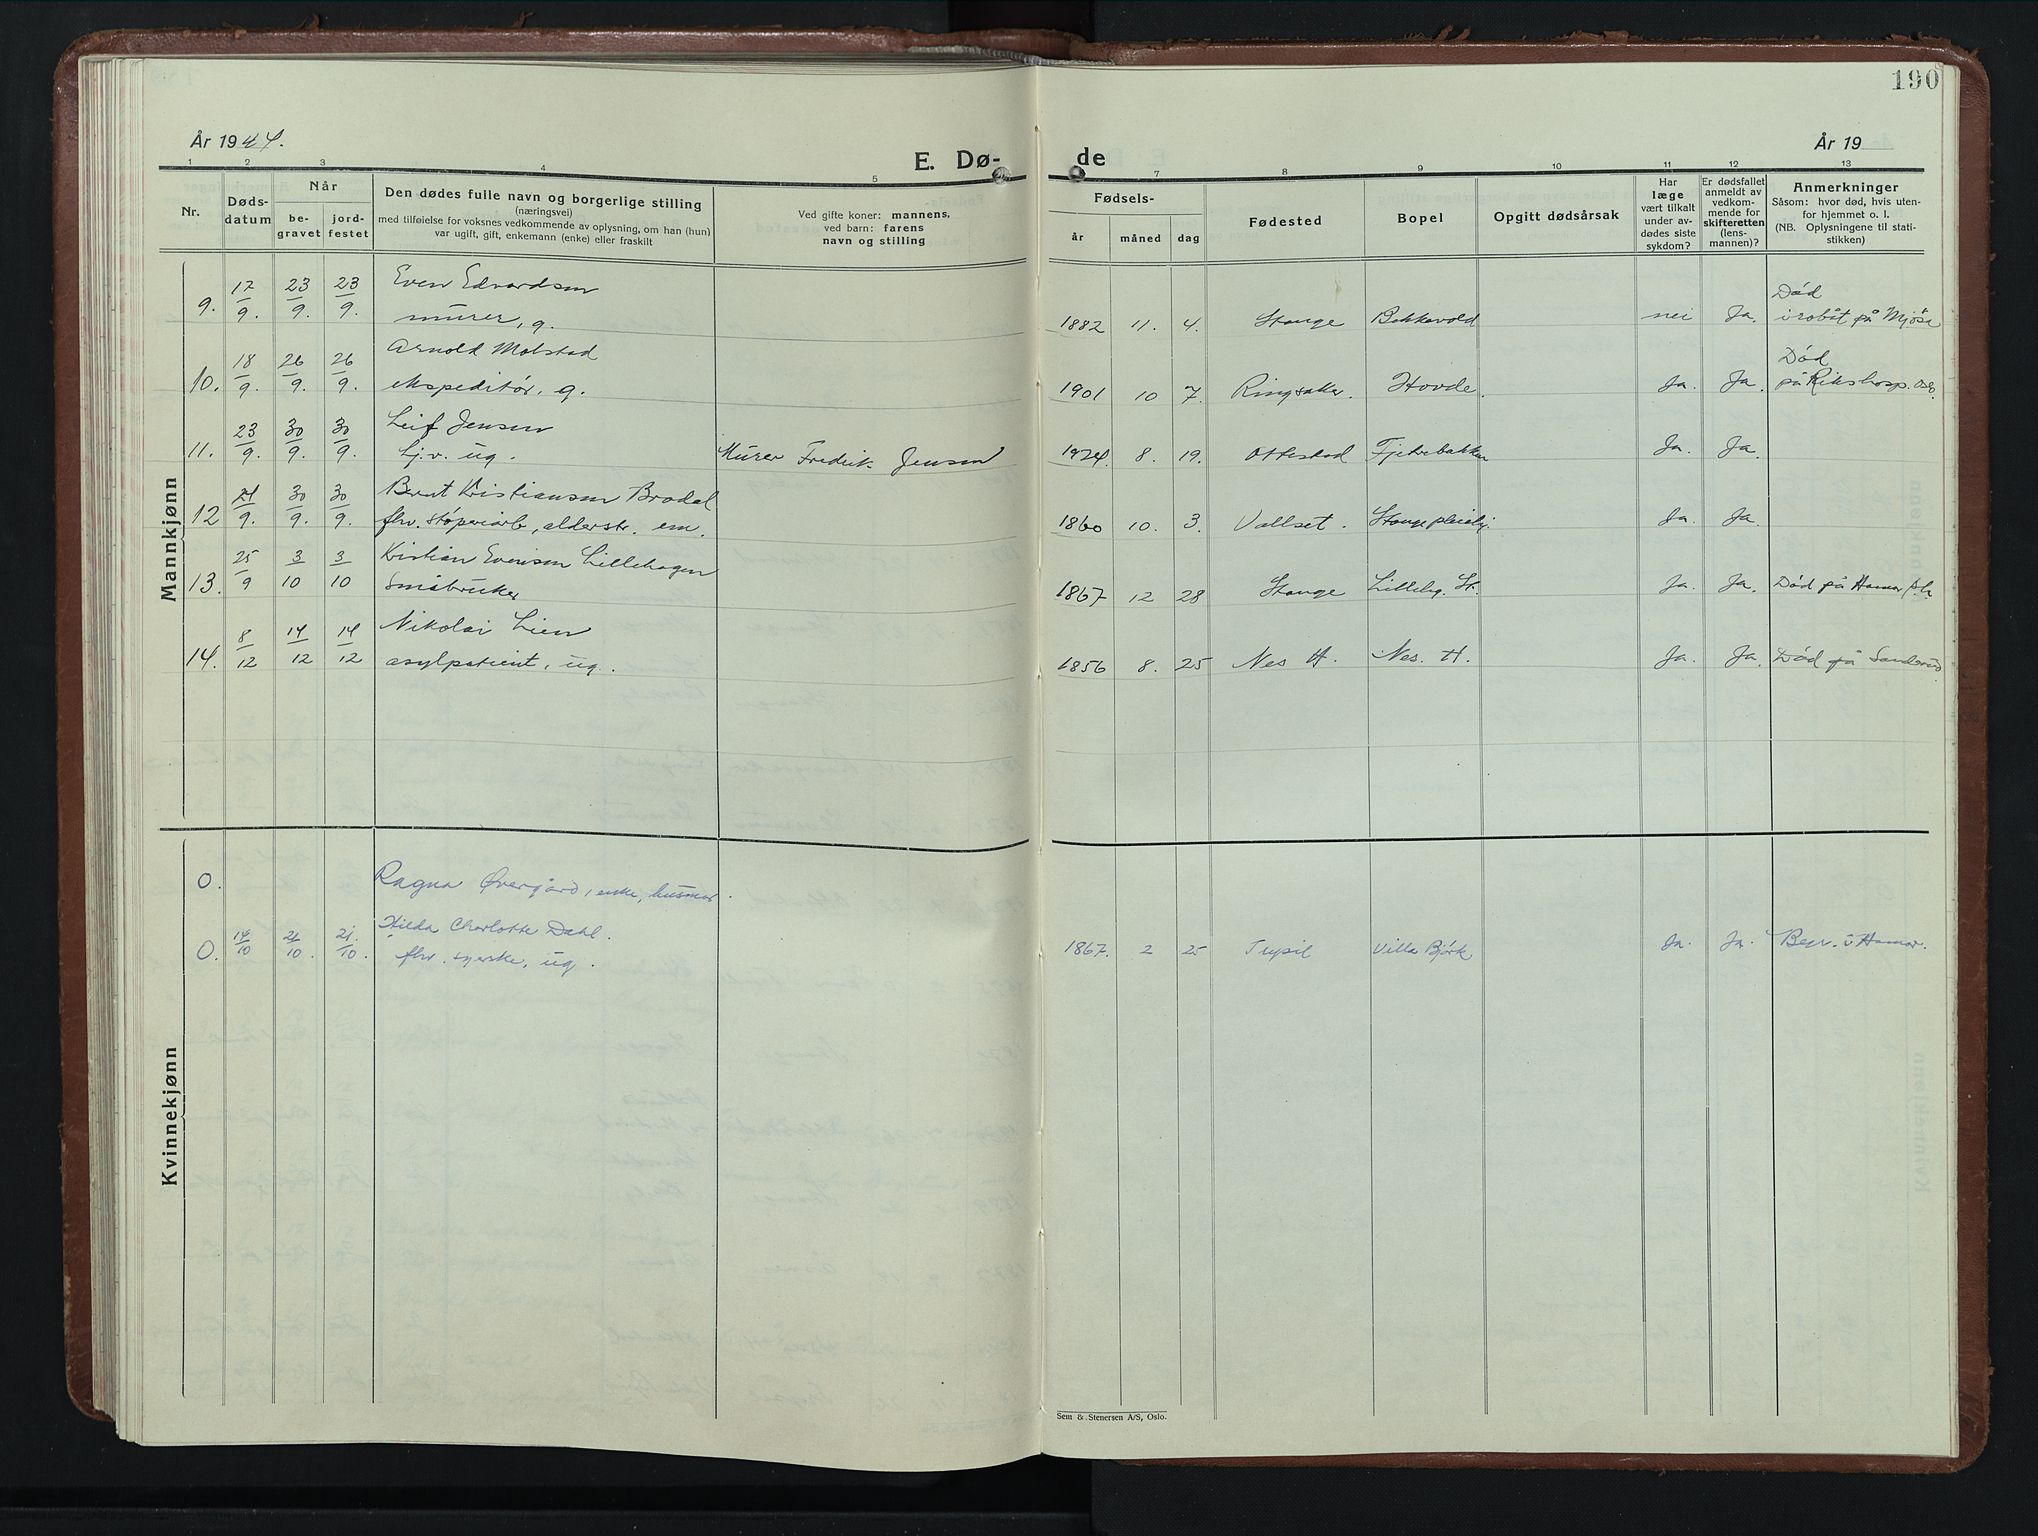 190
År 1944.
År 19
E. Dø-
de
1 2 3 4 5 7 8 9 10 11 12 13
Nr.
Døds-
datum
Når
be-
gravet
jord-
festet
Den dødes fulle navn og borgerlige stilling
(næringsvei)
med tilføielse for voksnes vedkommende av oplysning, om han (hun)
var ugift, gift, enkemann (enke) eller fraskilt
Ved gifte koner: mannens,
ved barn: farens
navn og stilling
Fødsels-
år måned dag
Fødested
Bopel
Opgitt dødsårsak
Har
læge
vært tilkalt
under av-
dødes siste
sykdom?
Er dødsfallet
anmeldt av
vedkom-
mende for
skifteretten
(lens-
mannen)?
Anmerkninger
Såsom: hvor død, hvis uten-
for hjemmet o. l.
(NB. Oplysningene til stati-
stikken)
Mannkjønn
9. 17/9. 23/9. 23/9. Even Edvardsen
murer, g. 1882 11. 4. Stange Bekkevold nei Ja. Død
i robåt på Mjøsa
10. 18/9. 26/9. 26/9. Arnold Molstad
ekspeditør, g. 1901 10 7. Ringsaker. Hovde. Ja. Ja. Død
på Rikshosp. Oslo.
11. 23/9. 30/9. 30/9. Leif Jensen
ug. Murer Fredrik Jensen 1924. 8. 19. Ottestad Fjetrebakken Ja. Ja.
12 24/9. 30/9. 30/9. Bernt Kristiansen Brodal
fhv. støperiarb, alderstr. em. 1860 10. 3. Vallset. Stange pleiehj. Ja. Ja.
13. 25/9 3/10 3/10 Kristian Evensen Lillehagen
Småbruker 1867 12 28 Stange Lilleh. St. Ja. Ja. Død på Hamar
14. 8/12 14/12 14/12 Nikolai Lien
asylpatient, ug. 1856 8. 25 Nes H. Nes. H. Ja. Ja. Død på Sanderud
Kvinnekjønn
0. Ragna Øvergård, enke, husmor.
0. 14/10 21/10. 21./10. Hilda Charlotte Dahl.
fhv. syerske, ug. 1867. 2 25 Trysil Villa Bjørk Ja. Ja. Begr. i Hamar.
Sem & Stenersen A/S, Oslo.